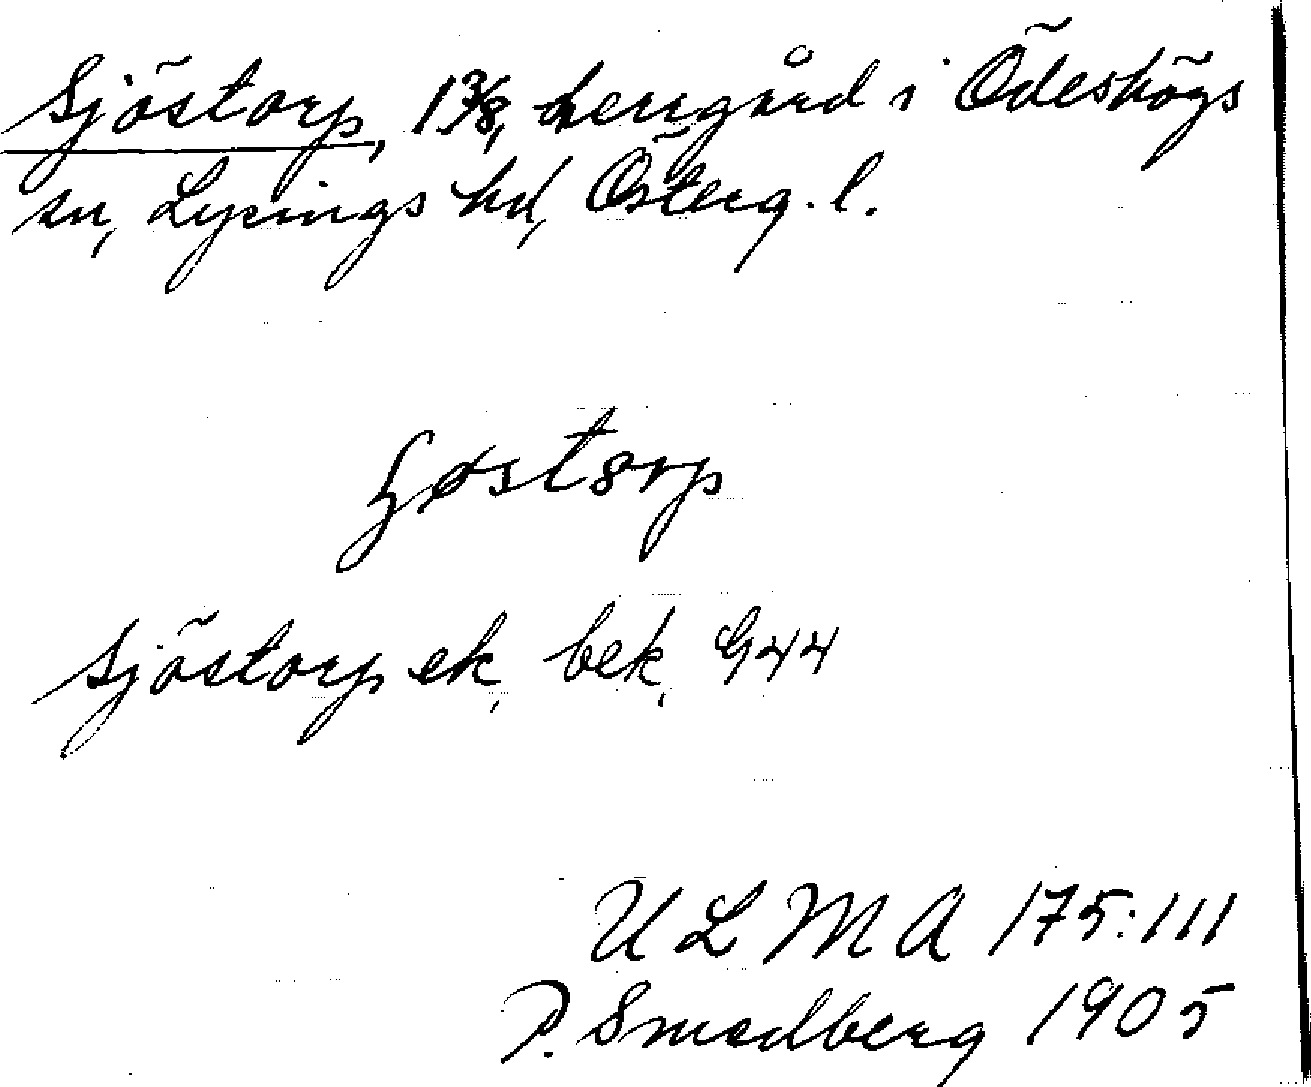 Sjöstorp, 1 3/8, herrgård i Ödeshögs
sn, Lysings hd, Österg. l.
ʃøstorp
Sjöstorp ek. bek. G44
ULMA 175:111
P. Smedberg 1905